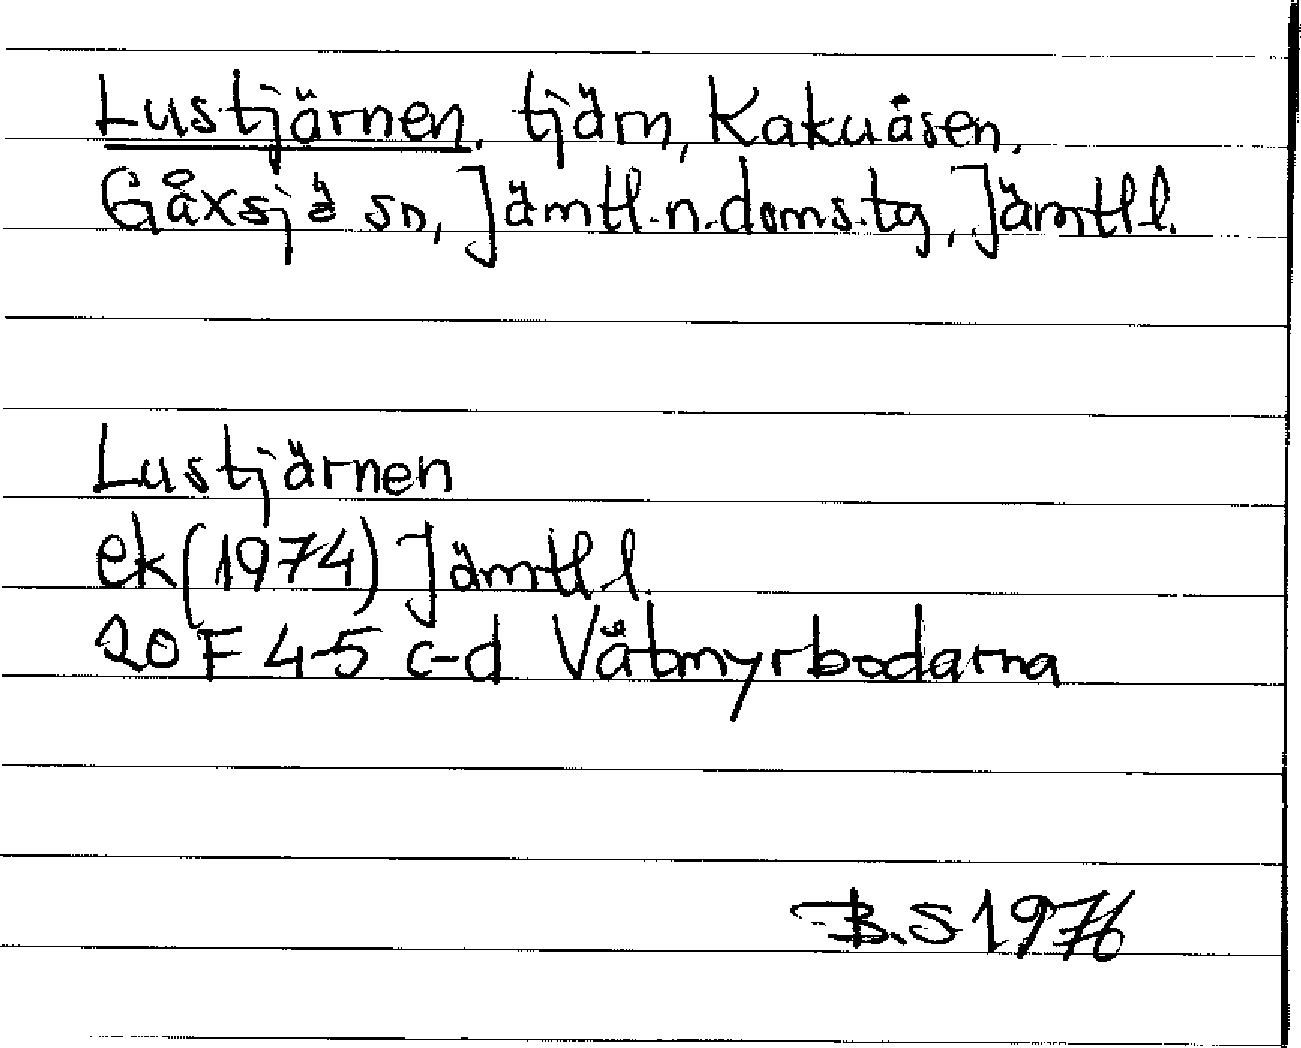 Lustjärnen. tjärn, Kakuåsen.
Gåxsjö sn, Jämtl.n.doms.tg, Jämtl l.
Lustjärnen
ek (1974) Jämtl l.
20 F 4-5 c-d Våtmyrbodarna
B.S 1976